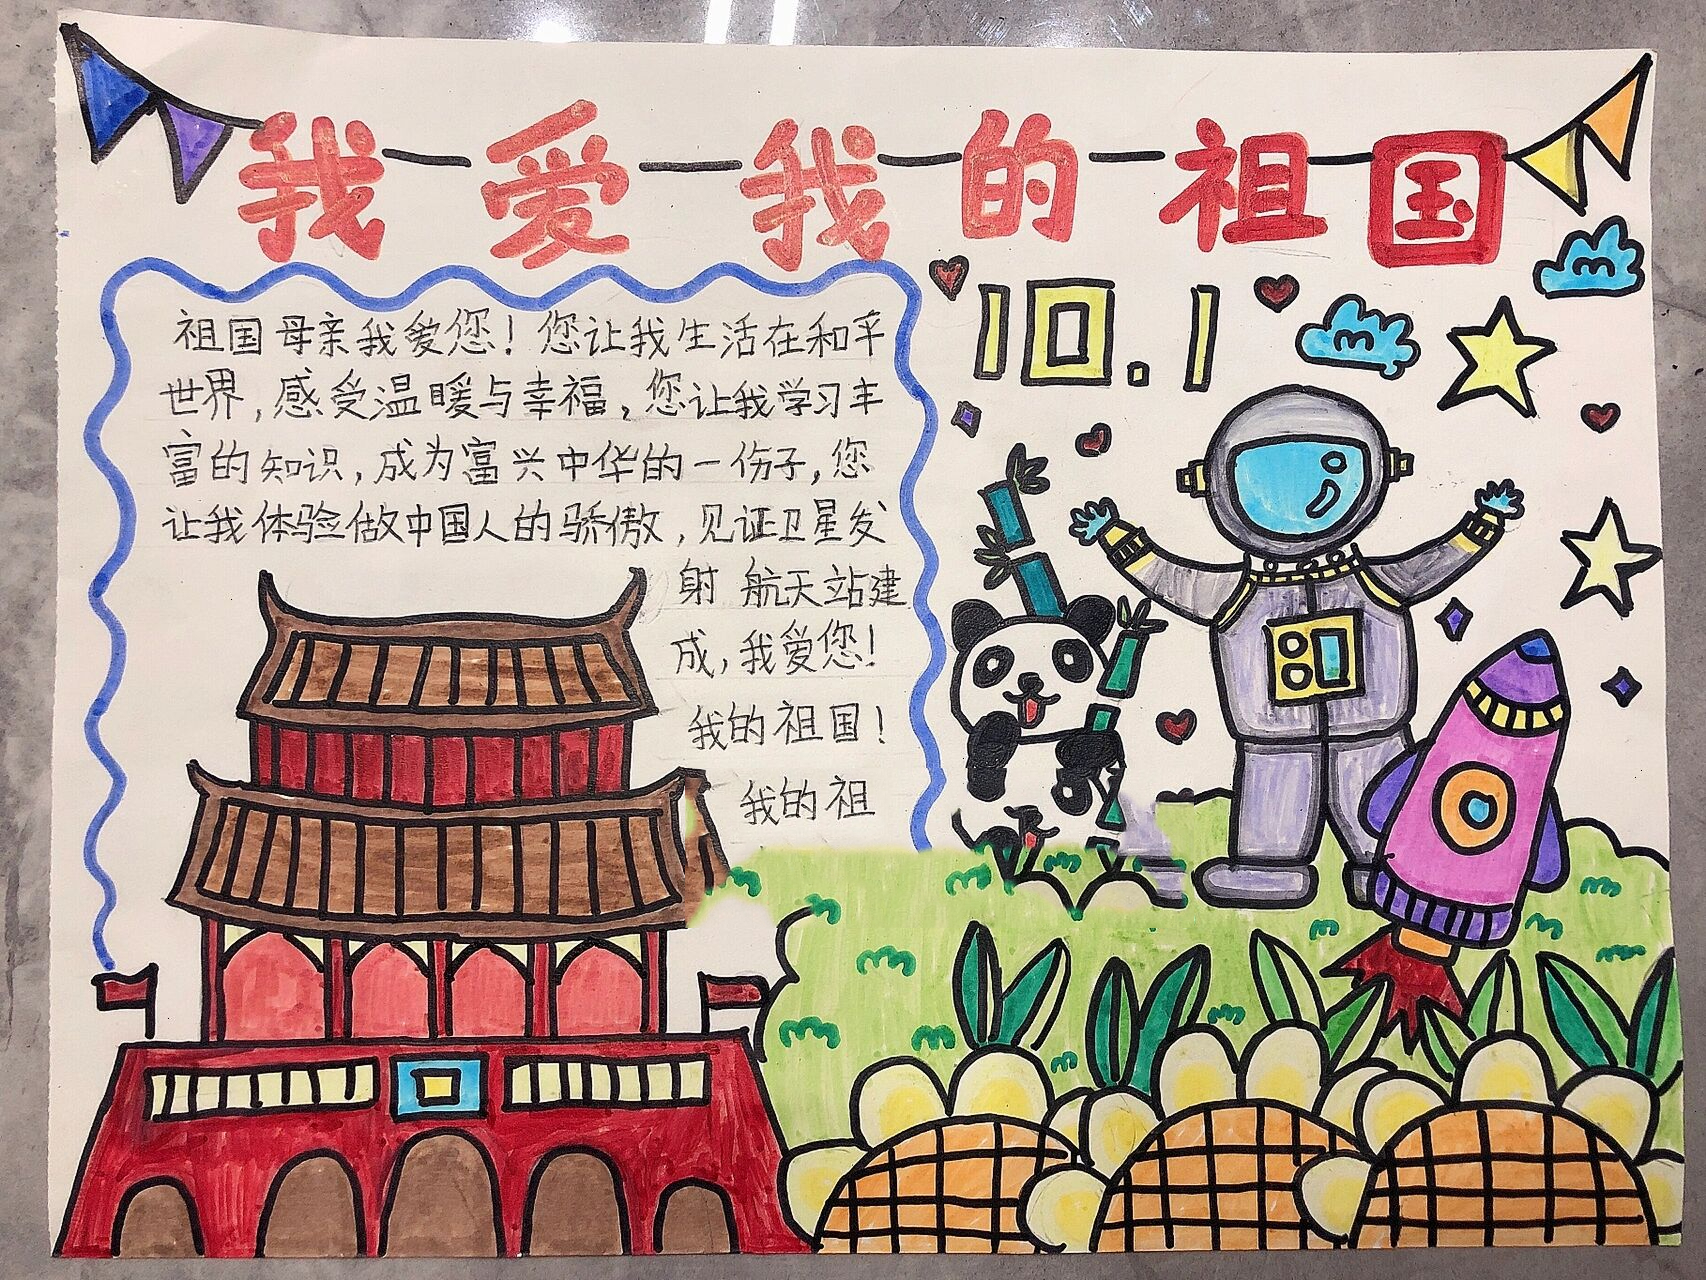 我爱我的祖国
10.1
祖国母亲我爱您！您让我生活在和平
世界，感受温暖与幸福，您让我学习丰
富的知识，成为富兴中华的一份子，您
让我体验做中国人的骄傲，见证卫星发
射 航天站建
成，我爱您！
我的祖国！
我的祖